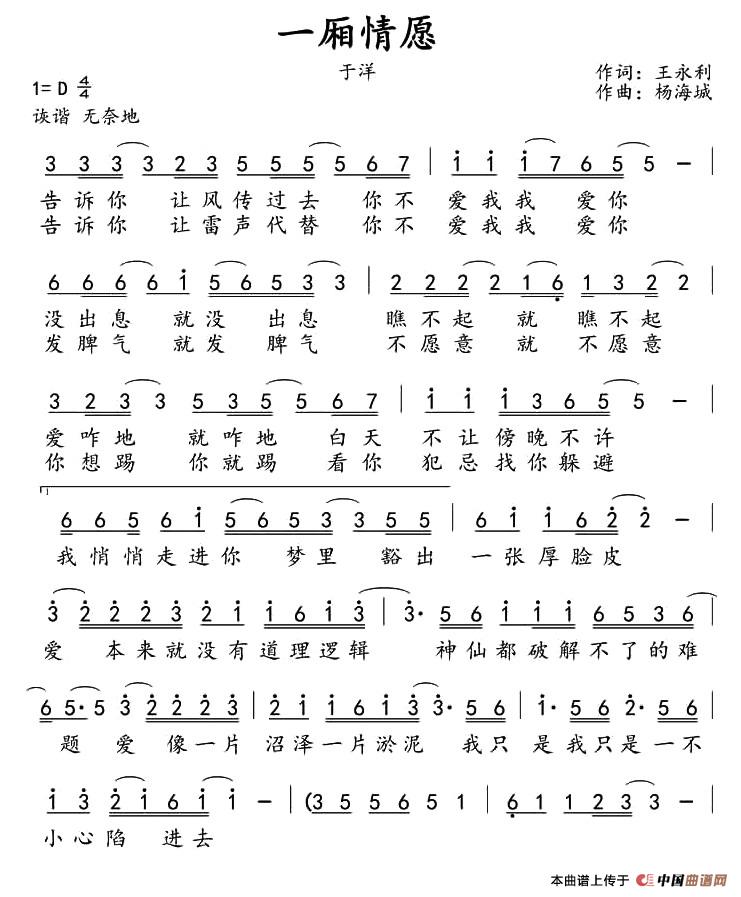 一厢情愿
于洋
1= D 4/4
作词：王永利
作曲：杨海城
诙谐 无奈地
3 3 3 3 2 3 5 5 5 5 6 7 | i i i 7 6 5 5 － |
告诉你 让风传过去 你不 爱我我 爱你
告诉你 让雷声代替 你不 爱我我 爱你
6 6 6 6 i 5 6 5 3 3 | 2 2 2 2 1 6 1 3 2 2 |
没出息 就没 出息 瞧不起 就 瞧不起
发脾气 就发 脾气 不愿意 就 不愿意
3 2 3 3 5 3 5 5 6 7 | i i i 3 6 5 5 － |
爱咋地 就咋地 白天 不让傍晚不许
你想踢 你就踢 看你 犯忌找你躲避
1
6 6 5 6 i 5 6 5 3 5 5 | 6 i i 6 2 2 － |
我悄悄走进你 梦里 豁出 一张厚脸皮
3 2 2 2 3 2 i i 6 i 3 | 3· 5 6 i i i 6 5 3 6 |
爱 本来就没有道理逻辑 神仙都破解不了的难
6 5· 5 3 2 2 2 3 | 2 i i 6 i 3 3· 5 6 | i· 5 6 2· 5 6 |
题 爱 像一片 沼泽一片淤泥 我只 是我只是一不
i 3 2 i 6 i i － | (3 5 5 6 5 1 | 6 1 1 2 3 3 － |
小心陷 进去
本曲谱上传于 中国曲谱网